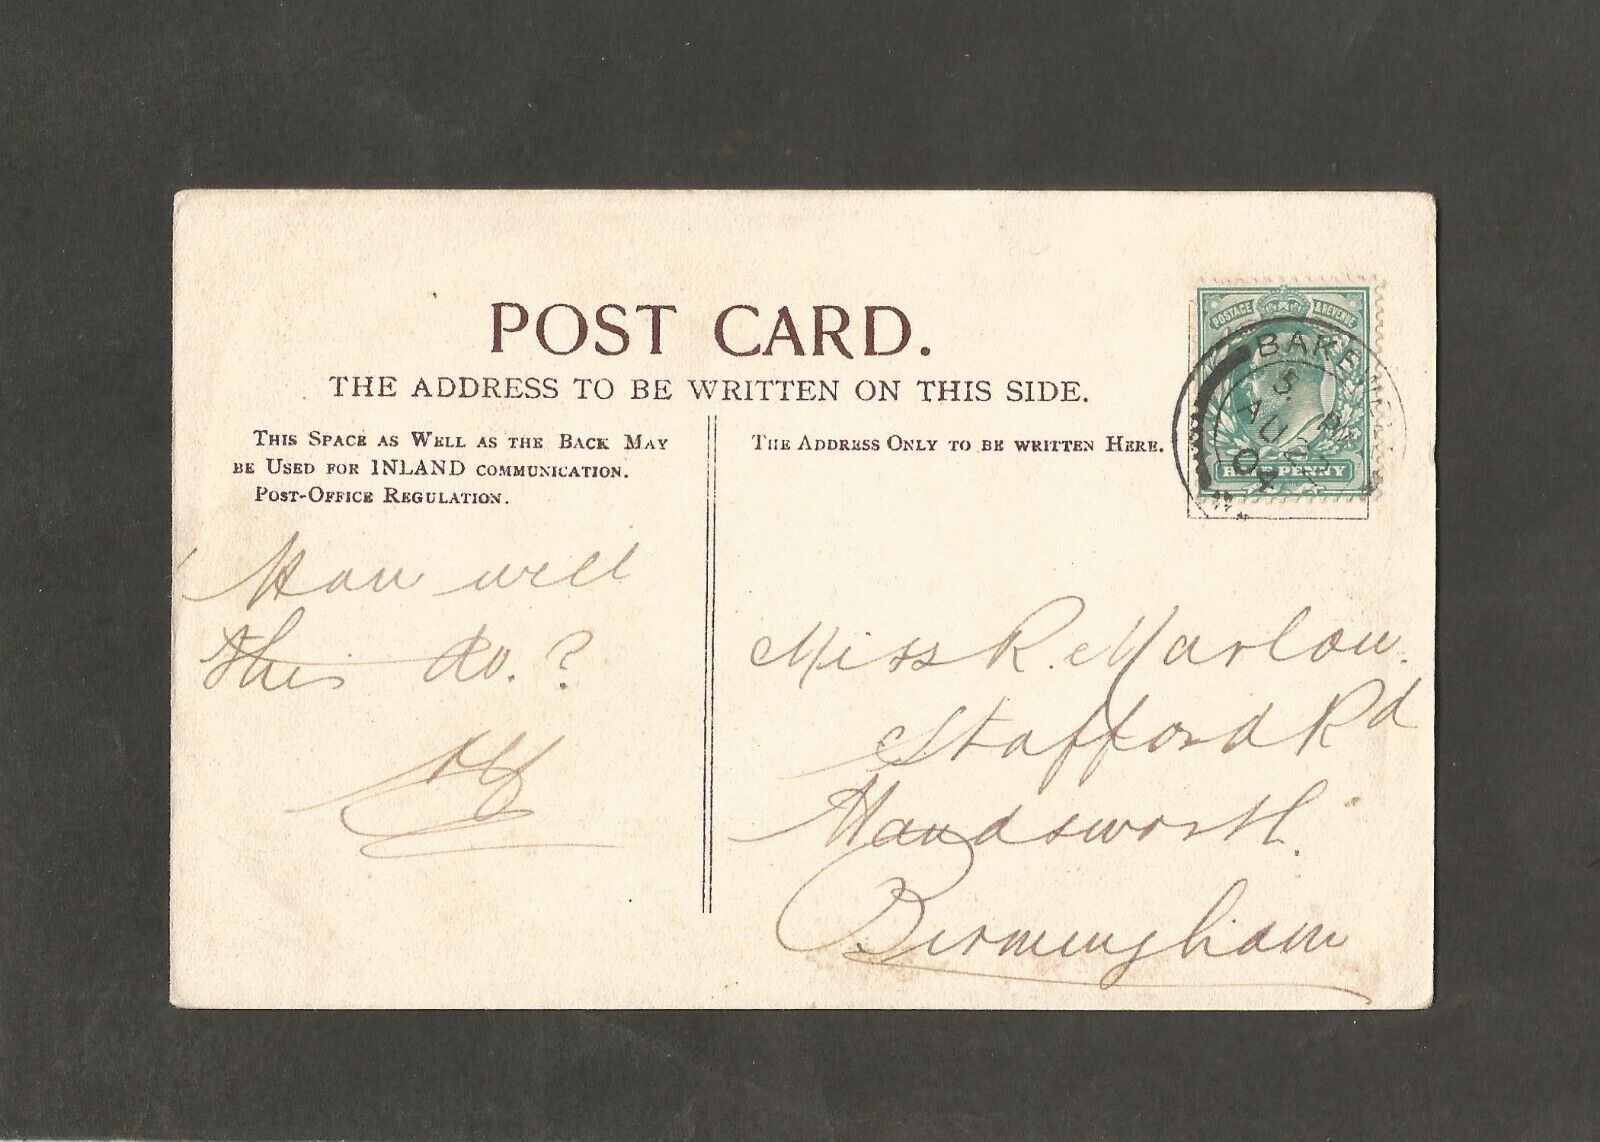 POST CARD.
THE ADDRESS TO BE WRITTEN ON THIS SIDE.
THIS SPACE AS WELL AS THE BACK MAY
BE USED FOR INLAND COMMUNICATION.
POST-OFFICE REGULATION.
THE ADDRESS ONLY TO BE WRITTEN HERE.
POSTAGE & REVENUE
HALF PENNY
AU
04
How will
this do.?
Miss R. Marlow.
Stafford Rd
Handsworth.
Birmingham